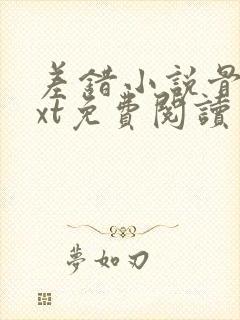 差錯小說骨
xt免費閱讀
夢如刀